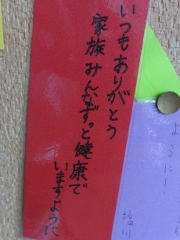 いつもありがとう
家族みんなずっと健康で
いますように